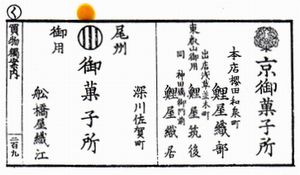 京御菓子所
本店神田和泉町
鯉屋織部
出店浅草並木町
東叡山御用
鯉屋筑後
同 神田御門前
鯉屋織居
御菓子所
深川佐賀町
尾州
御用
舩橋屋織江
く
買物獨案内
二百九